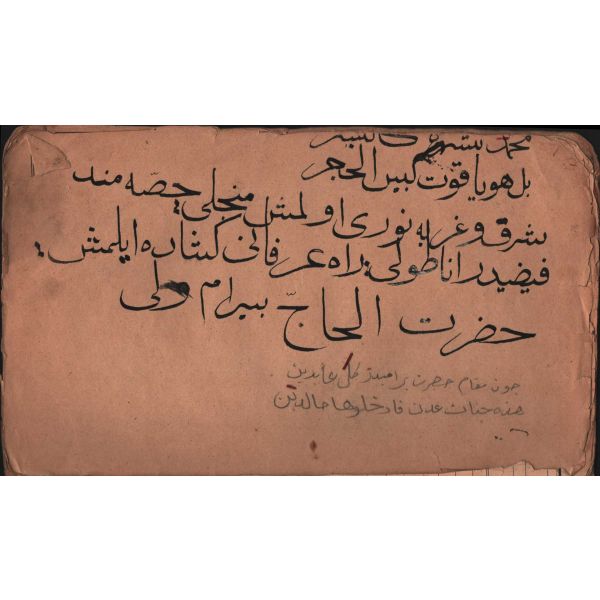 محمد بشر
بل هو ياقوت بين الحجر
شرق و غربه نوری اولمش منجلی حصه مند
فیضیدر اناطولی راه عرفانی کشاده ایلمش
حضرت الحاجّ بیرام ولی
چون مقام حضرت پیر امیدر کل عابدین
هذه جنات عدن فادخلوها خالدین